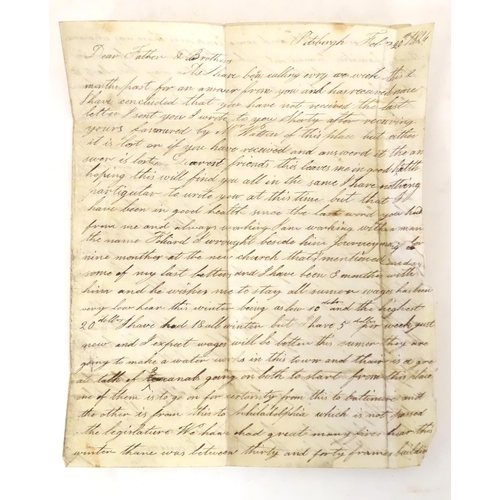 Pitsburgh Feb
Dear Father & Brothers
As I have been calling evry we week this
month past for an answer from you and has received none
I have concluded that you have not received the last
letter I sent you I wrote to you shortly after receiving
yours by Mr of this place but either
it is lost or if you have received and answerd it the an
swer is lost Dearest friends this leaves me in good health
hoping this will find you all in the same I have nothing
particular to write you at this time but that I
have been in good health since the last word you had
from me and always working I am working with a man
the name I wrought beside him Journeywork
nine months at the new church that I mentioned
some of my last letters and I have been 3 months with
him and he wishes me to stay all sumer wages has been
very low hear this winter being as low 10 and the highest
20 dollars I have had 18 all winter but I have 5 dollars per week just
now and I expect wages will be better this sumer they are
going to make a water works in this town and thear is a gre
at talk of going on both to start from this place
one of them is to go on for certinty from this to baltimore and
the other is from this to Philadelphia which is not passed
the legislature We have had great many fires hear this
winter thare was between thirty and forty frames